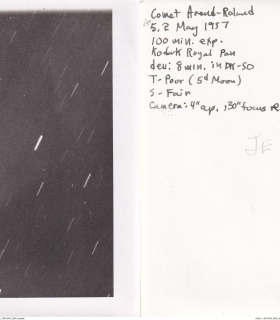 Comet Arend-Roland
5.2 May 1957
100 min. exp.
Kodak Royal Pan
dev: 8 min. in DK-50
T-Poor (5d Moon)
S-Fair
Camera: 4" ap., 30" focus re
JE